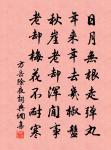 日月無根走彈丸
年來年去莫椒盤
秋崖老却渾閒事
老却梅花不耐寒
方岳除夜詞典網集